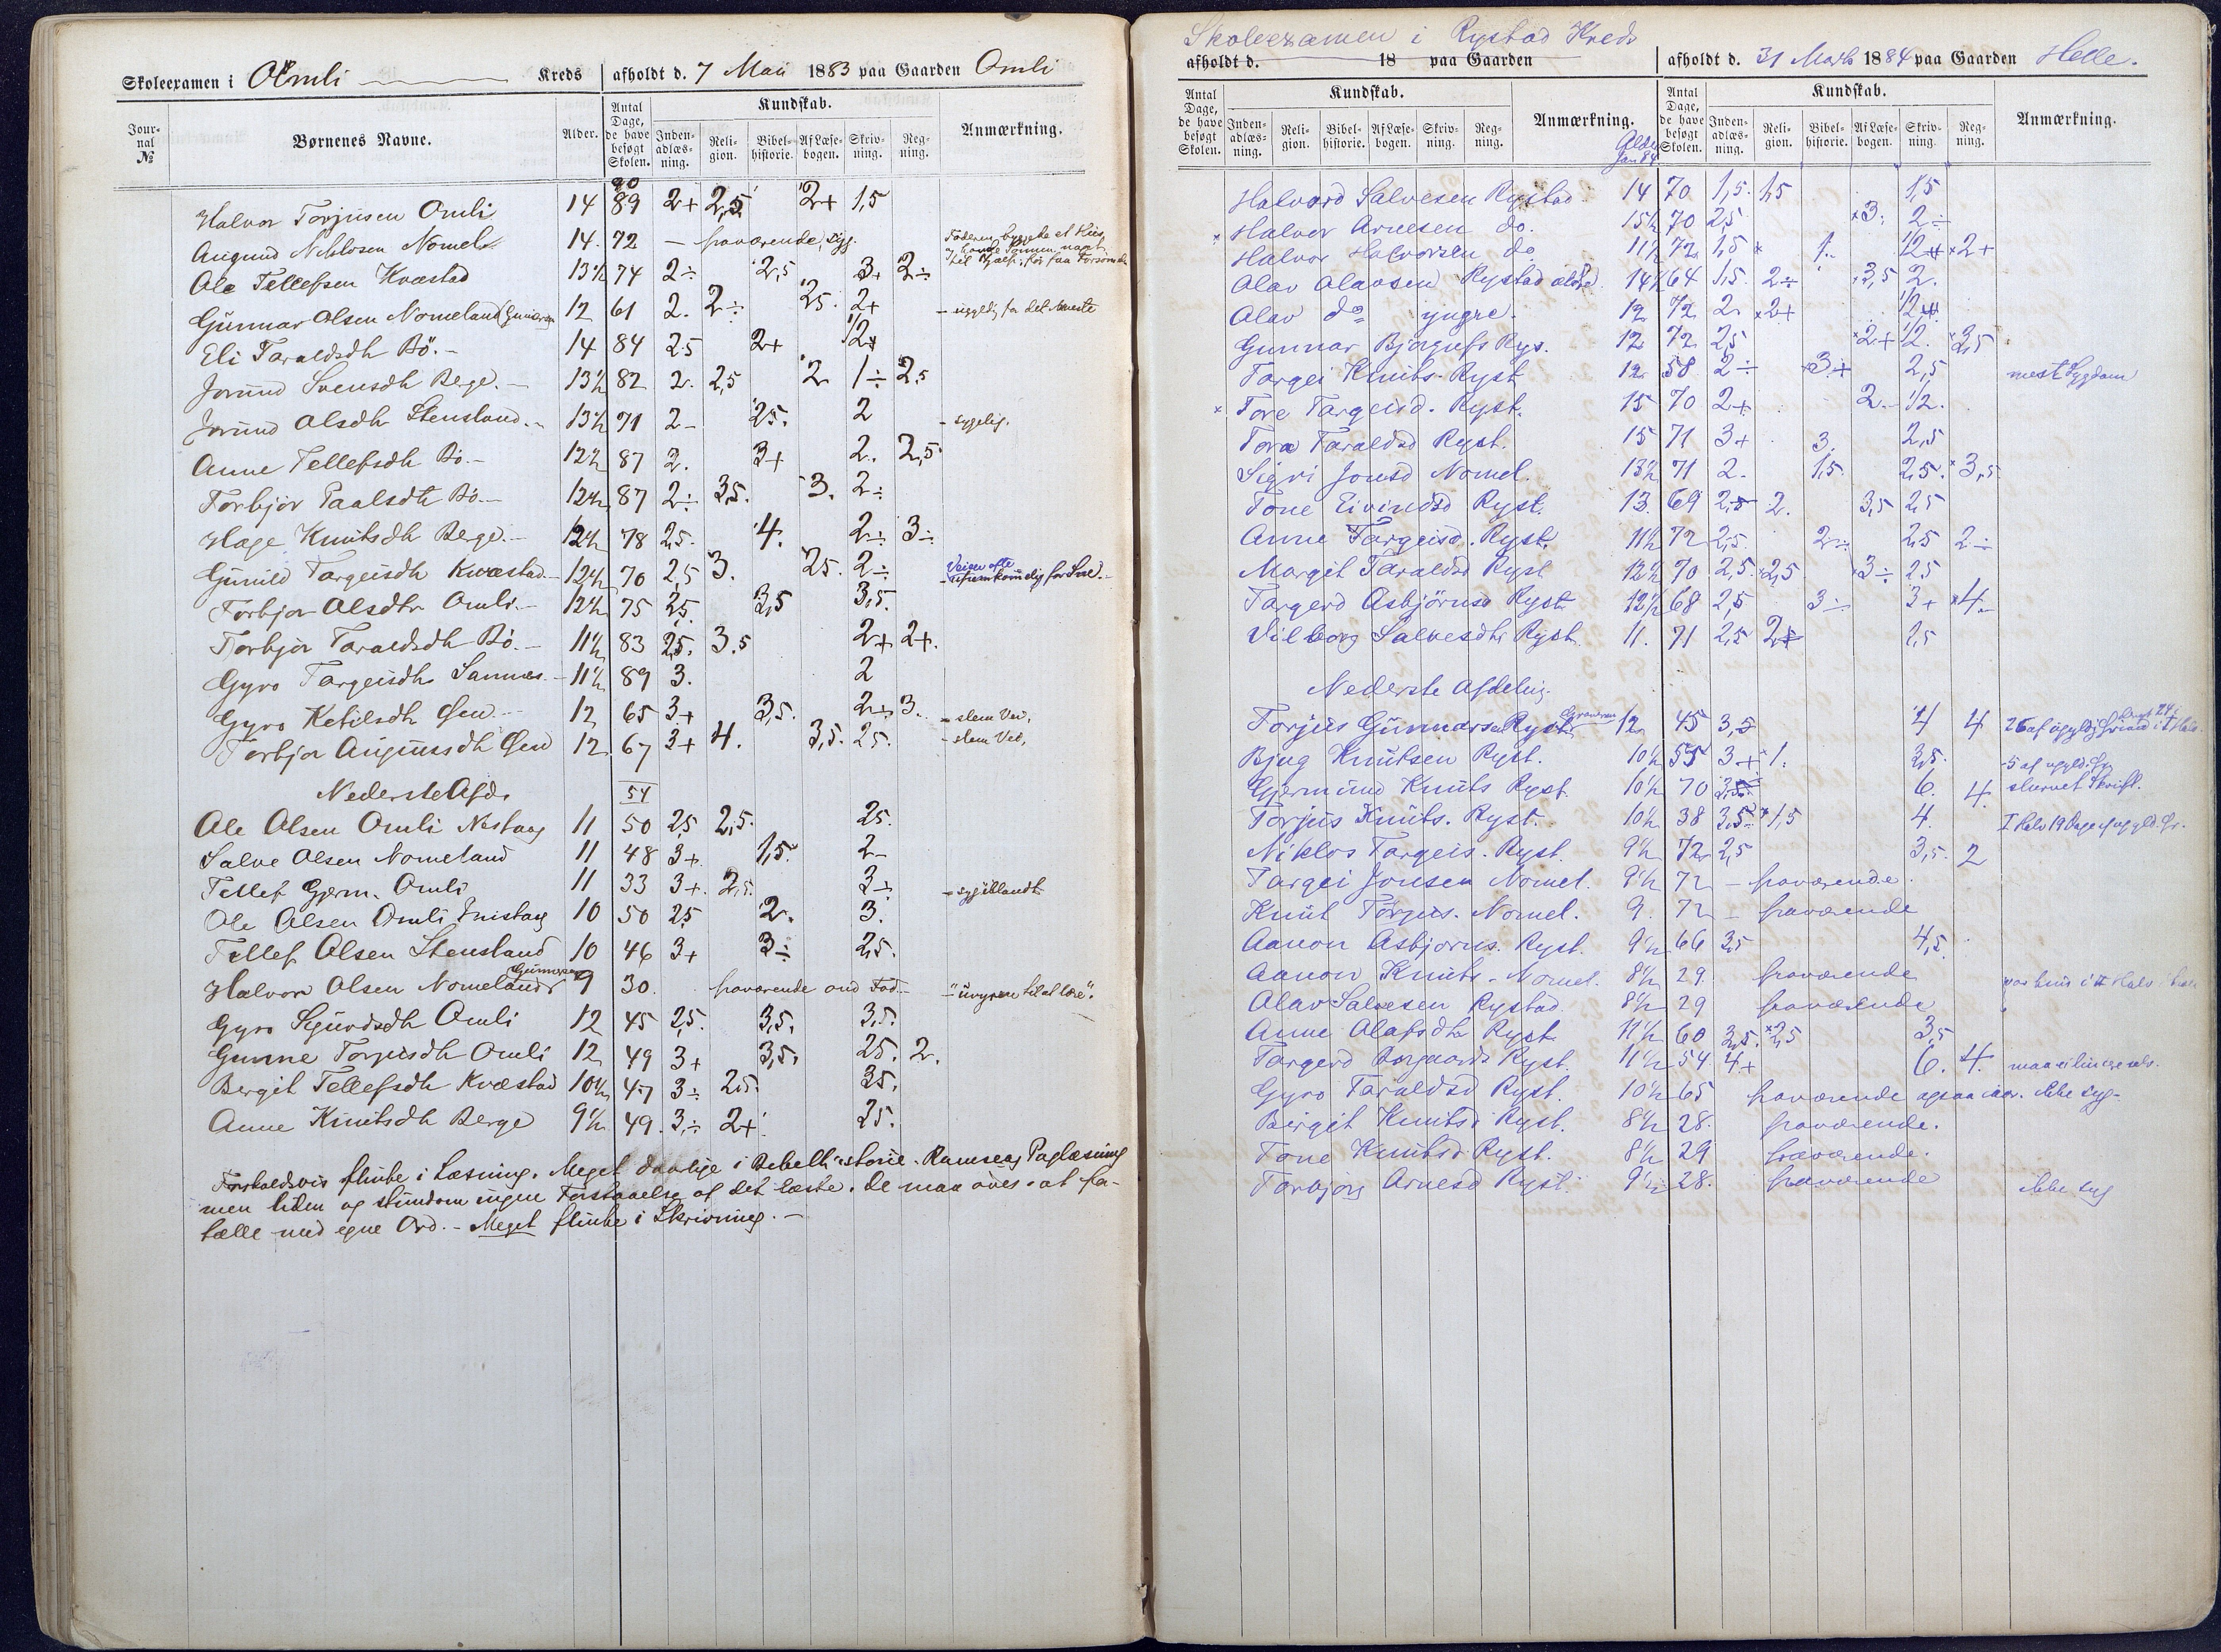 Skoleexamen i Omli Kreds afholdt d. 7 Mai 1883 paa Gaarden Omli
Journal № Børnenes Navne. Alder. Antal Dage, de have besøgt Skolen. Kundskab. Indenadlæsning. Religion. Bibelhistorie. Af Læsebogen. Skrivning. Regning. Anmærkning.
90
Halvor Torjusen Omli 14 89 2+ 2,5 2+ 1,5
Augund Niklosen Nomel. 14. 72 – fraværende, syg. Faderen byggede et Huus
Ole Tellefsen Kvæstad 13½ 74 2÷ 2,5 3+ 2÷
Gunnar Olsen Nomeland 12 61 2. 2÷ 25. 2+ – ugyldig for det meste
Eli Taraldsdtr Bö. – 14 84 2.5 2+ ½+
Jorund Svensdtr Berge. – 13½ 82 2. 2,5 2 1÷ 2,5
Jorund Olsdtr Stensland. – 13½ 71 2– 25. 2 – sygelig.
Anne Tellefsdtr Bö. – 12½ 87 2. 3+ 2. 2,5
Torbjör Paalsdtr Bö. – 12½ 87 2÷ 3,5. 3. 2÷
Hage Knutsdtr Berge. – 12½ 78 2,5. 4. 2÷ 3÷
Gunild Targeisdtr Kvæstad. – 12½ 70 2,5 3. 25. 2÷ Veien ofte ufremkommelig for Sne. –
Torbjor Olsdtr Omli. – 12½ 75 2,5. 3,5 3,5.
Torbjor Taraldsdtr Bö. – 11½ 83 2,5. 3.5 2+ 2+.
Gyro Targeisdtr Sannes. – 11½ 89 3. 2
Gyro Ketilsdtr Øen. – 12 65 3+ 3,5. 2+ 3. – slem Vei.
Torbjor Augunsdtr Øen 12 67 3+ 4. 3,5. 25. – slem Vei.
Nederste Afd. 54
Ole Olsen Omli Nestaag 11 50 2,5 2,5. 25.
Salve Olsen Nomeland 11 48 3+ 1,5. 2–
Tellef Gjerm. Omli 11 33 3+. 2,5. 3÷ – syg iblandt
Ole Olsen Omli 10 50 2,5 2. 3.
Tellef Olsen Stensland 10 46 3+ 3÷ 2,5.
Halvor Olsen Nomeland Gunnarsen 9 30. fraværende ond Fod –
Gyro Sigurdsdtr Omli 12 45 2,5. 3,5. 3,5.
Gunne Torjusdtr Omli 12 49 3+ 3,5. 25. 2.
Bergit Tellefsdtr Kvæstad 10½ 47 3÷ 2,5. 35.
Anne Knutsdtr Berge 9½ 49. 3÷ 2+ 25.
Forholdsvis flinke i Læsning. Meget daarlige i Bibelhistorie. Ramseag Paglæsning
men liden og stundom ingen Forstaaelse af det læste. De maa öves i at for-
tælle med egne Ord. – Meget flinke i Skrivning. –
Skoleexamen i Rystad Kreds
afholdt d. 18 paa Gaarden afholdt d. 31 Marts 1884 paa Gaarden Helle.
Antal Dage, de have besøgt Skolen. Kundskab. Indenadlæsning. Religion. Bibelhistorie. Af Læsebogen. Skrivning. Regning. Anmærkning. Alder Jan 84 Antal Dage, de have besøgt Skolen. Kundskab. Indenadlæsning. Religion. Bibelhistorie. Af Læsebogen. Skrivning. Regning. Anmærkning.
Halvard Salvesen Rystad 14 70 1,5. 1,5 1,5
× Halvor Arnesen do. 15½ 70 2,5 ×3. 2÷
Halvor Halvorsen do 11½ 72 1,5 × 1. ½+ ×2+
Olav Olavsen Rystad ældre. 14½ 64 1,5. 2÷ 3,5 2.
Olav do yngre. 12 72 2. ×2+ ½+
Gunnar Bjorgufs Rys. 12 72 2,5 ×2+ ½. ×2,5
Targei Knuts. Ryst 12 58 2÷ 3+ 2,5 mest Sygdom
× Tore Targeisd. Ryst. 15 70 2+ 2.– ½.
Tora Taraldsd Ryst. 15 71 3+ 3. 2,5
Sigri Jonsd Nomel. 13½ 71 2. 1,5. 2,5. ×3,5
Tone Eivindsd Ryst. 13. 69 2,5 2. 3,5 2,5
Anne Targeisd. Ryst. 11½ 72 2,5. 2÷ 2,5 2÷
Margit Taraldsd Ryst 12½ 70 2,5. 2,5 ×3÷ 2,5
Targerd Asbjörnsd Ryst. 12½ 68 2,5 3÷ 3+ ×4.–
Vilborg Salvesdtr Ryst. 11. 71 2,5 2+ 2,5
Nederste Afdeling.
Torjus Gunnarsen Ryst. 12 45 3,5 4 4
Bjug Knutsen Ryst. 10½ 55 3+ 1. 3,5. 5 af ugyld. Gr
Gjermund Knuts Ryst. 10½ 70 3,5. 6. 4. slurvet Skrift.
Torjus Knuts. Ryst. 10½ 38 3,5. 1,5 4. I Halv 19 Dage af ugyld. Gr.
Niklos Targeis. Ryst. 9½ 72 2,5 3,5. 2
Targei Jonsen Nomel. 9½ 72 – fraværende.
Knut Torjus. Nomel. 9. 72 – fraværende
Aanon Asbjorns. Ryst. 9½ 66 3,5 4,5.
Aanon Knuts. Nomel. 8½ 29. fraværende
Olav Salvesen Rystad. 8½ 29 fraværende
Anne Olafsdtr Ryst. 11½ 60 3,5. ×2,5 3,5
Targerd Ryst. 11½ 54. 4+ 6. 4.
Gyro Taraldsd Ryst. 10½ 65 fraværende ogsaa ifjor. ikke syg –
Birgit Knutsd Ryst. 8½ 28. fraværende.
Tone Knutsd Ryst. 8½ 29 fraværende.
Torbjorg Arnesd Ryst. 9½ 28. fraværende ikke syg